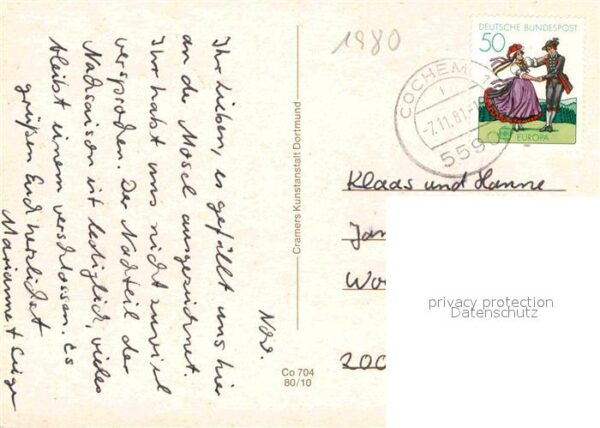 Nov.
Ihr Lieben, es gefällt uns hier
an der Mosel ausgezeichnet.
Ihr habt uns nicht zuviel
versprochen. Der Nachteil der
Nachsaison ist lediglich, vieles
bleibt einem verschlossen. Es
grüßen Euch herzlichst
Marianne +
Cramers Kunstanstalt Dortmund
Co 704
80/10
1980
DEUTSCHE BUNDESPOST
50
EUROPA
COCHEM
-7.11.81-
5590
Klaas und Hanne
Jan
Wo
200
privacy protection
Datenschutz